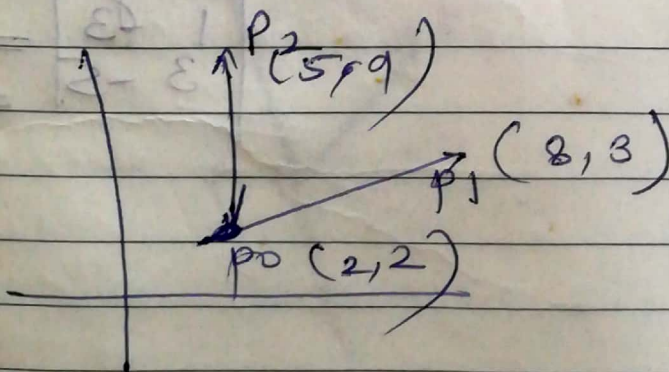 P2 (5,9)
P1 (8, 3)
P0 (2,2)